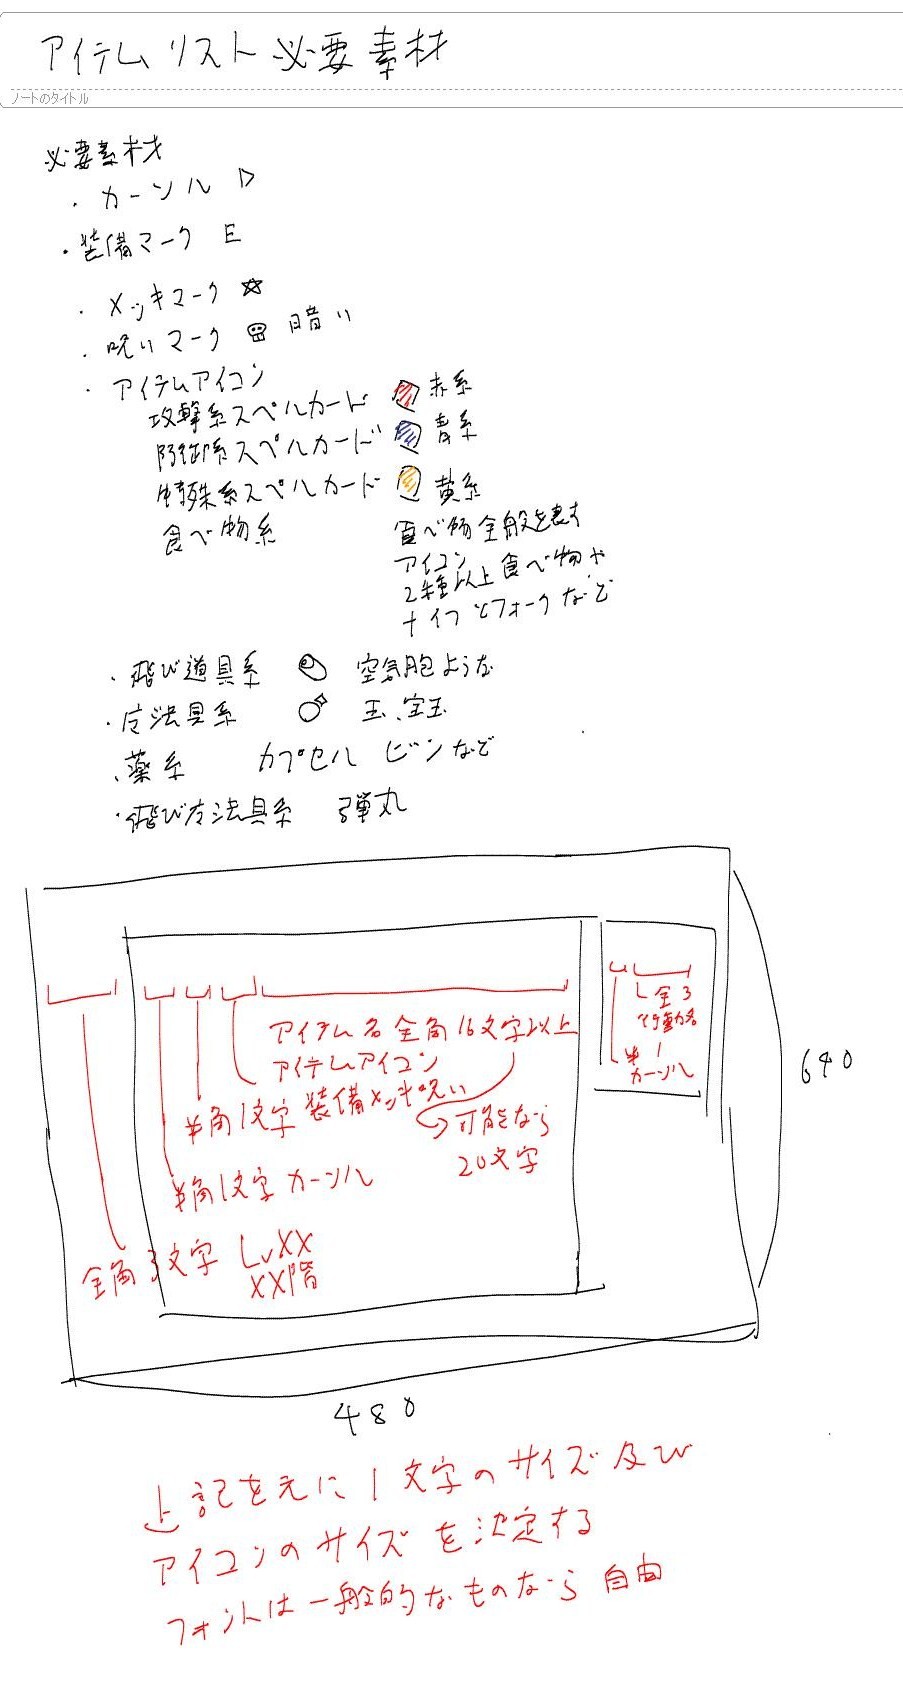 アイテムリスト必要素材
ノートのタイトル
必要素材
・カーソル ▷
・装備マーク E
・メッキマーク ☆
・呪いマーク 暗い
・アイテムアイコン
攻撃系スペルカード 赤系
防御系スペルカード 青系
特殊系スペルカード 黄系
食べ物系 食べ物全般を表す
アイコン
2種以上食べ物や
ナイフとフォークなど
・飛び道具系 空気胞ような
・方法具系 玉、宝玉
・薬系 カプセル ビンなど
・飛び方法具系 弾丸
全3
行動名
半1
カーソル
アイテム名全角16文字以上
アイテムアイコン
半角1文字 装備メッキ呪い
可能なら
20文字
半角1文字 カーソル
全角3文字 LvXX
XX階
640
480
上記を元に1文字のサイズ及び
アイコンのサイズを決定する
フォントは一般的なものなら自由